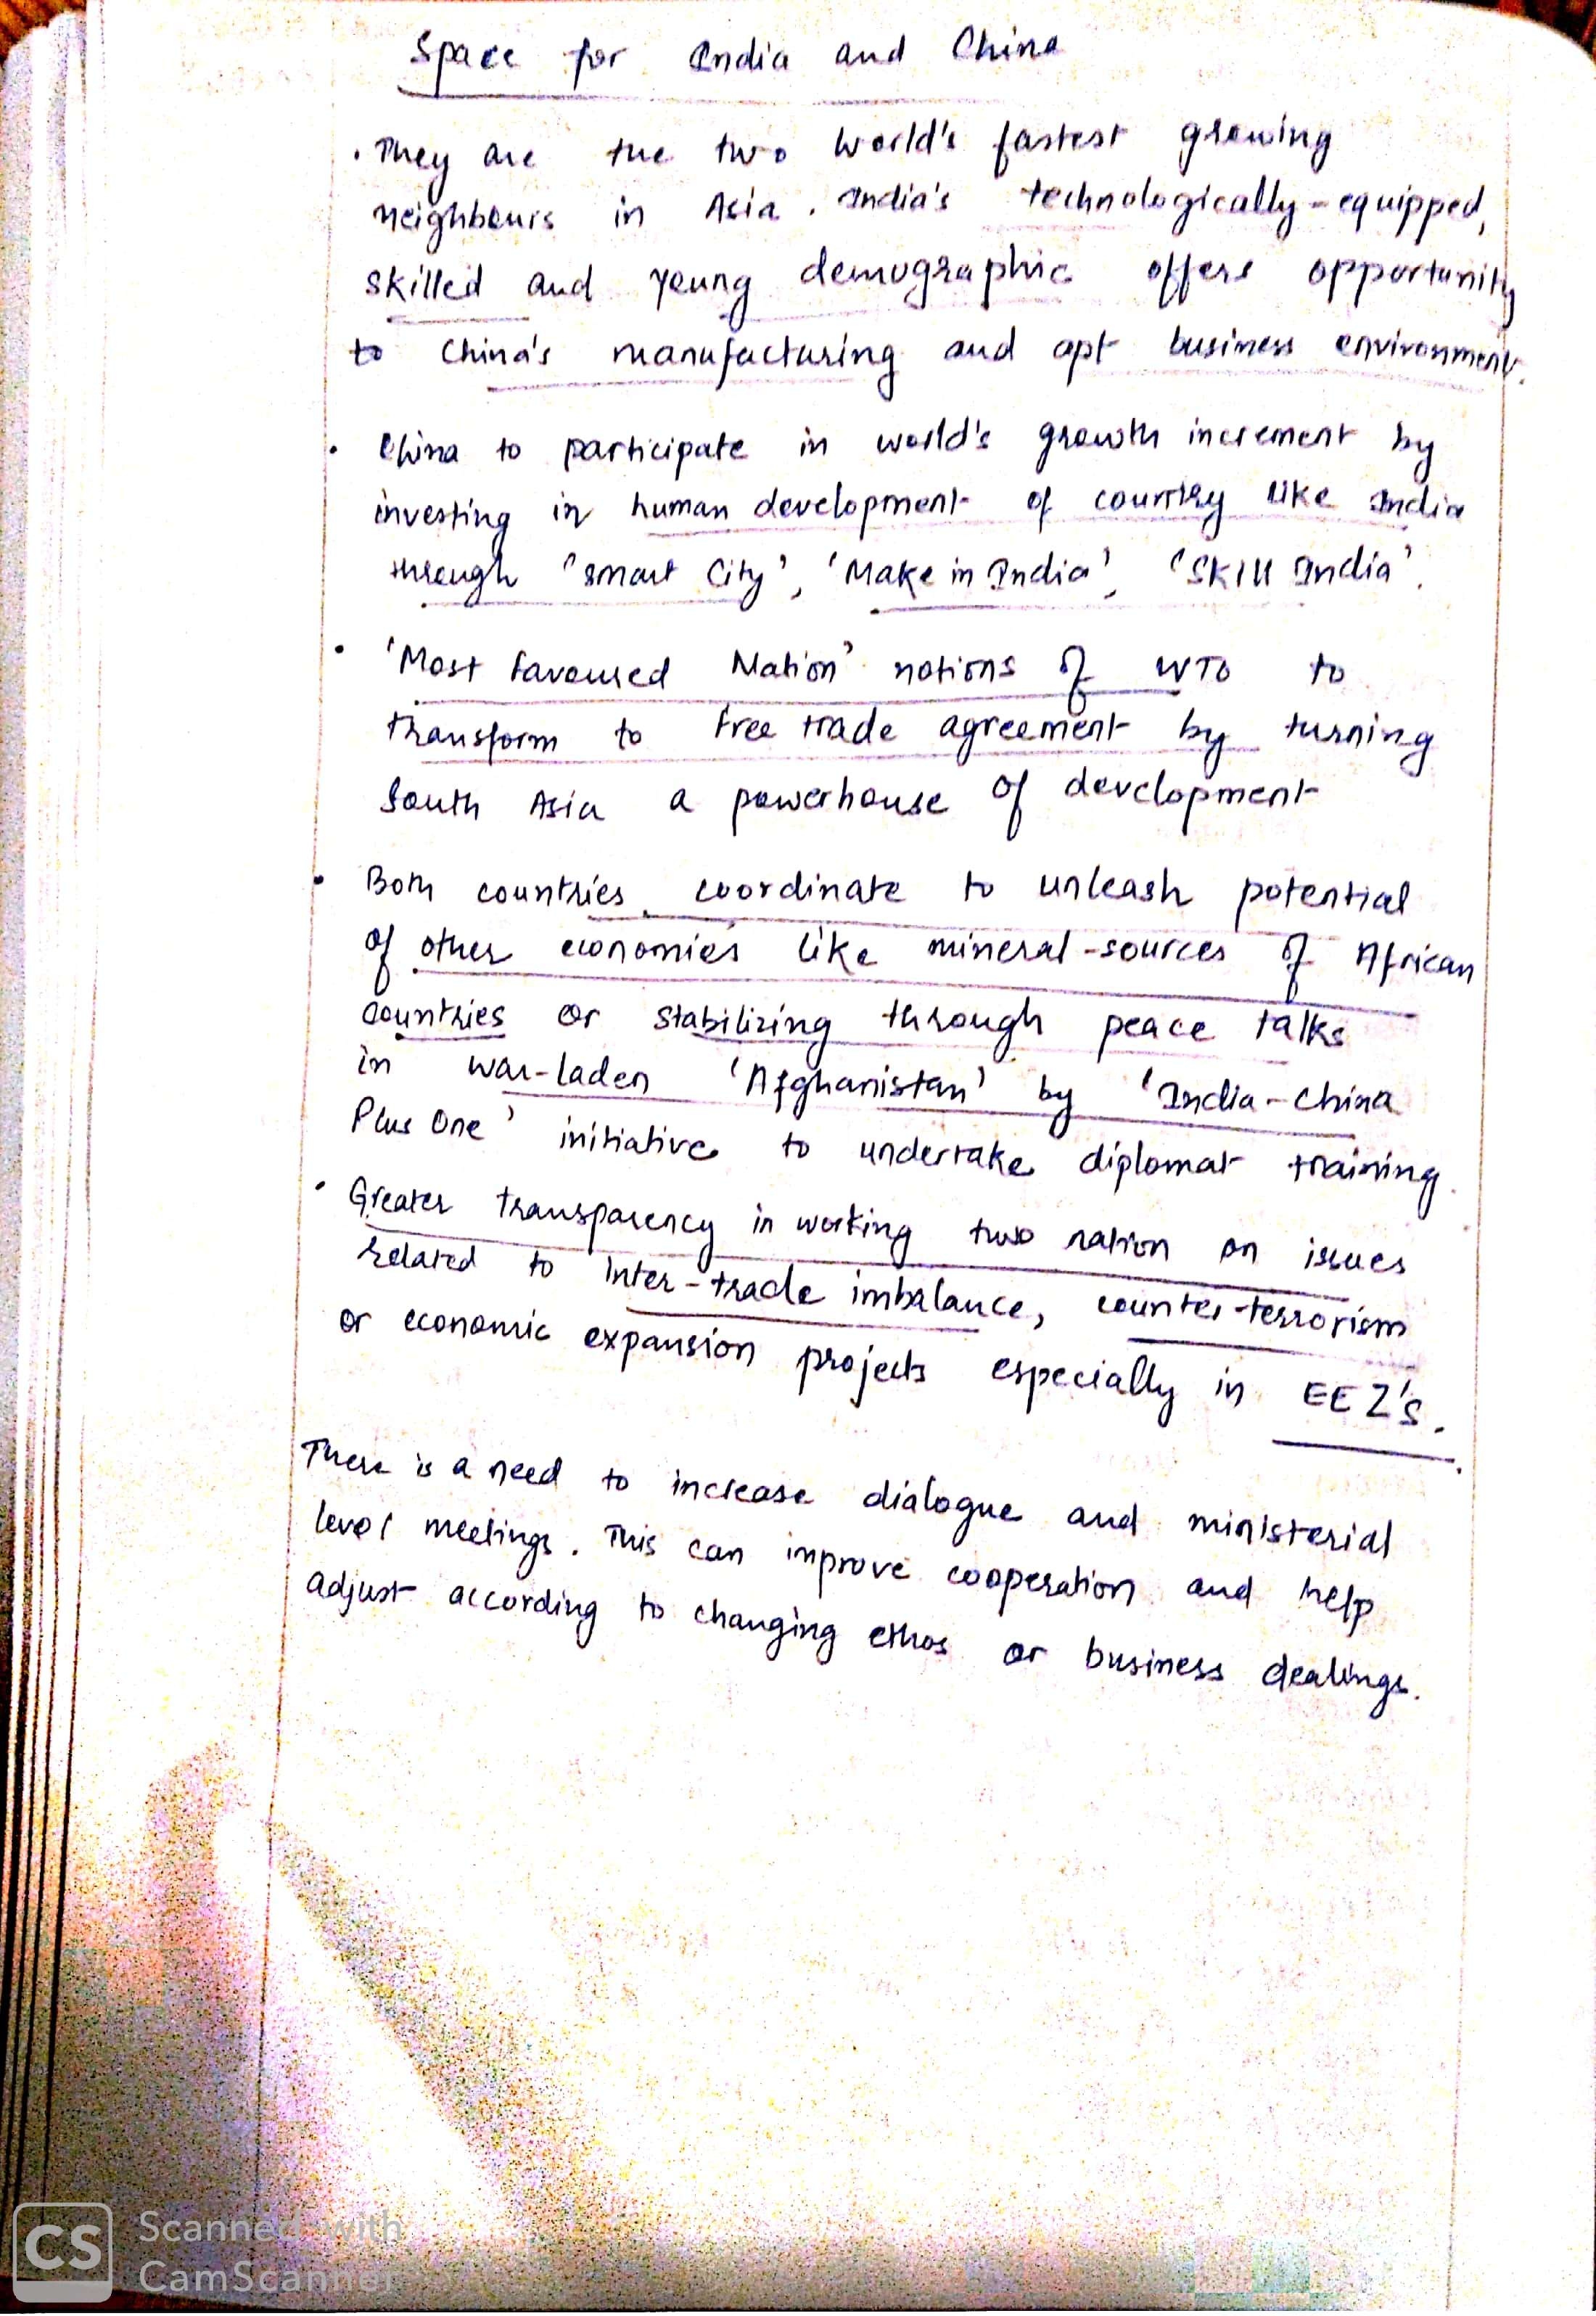 Space for India and China
• They are the two world's fastest growing
neighbours in Asia. India's technologically-equipped,
skilled and young demographic offers opportunity
to China's manufacturing and apt business environment.
• China to participate in world's growth increment by
investing in human development of country like India
through 'Smart City', 'Make in India', 'Skill India'.
• 'Most Favoured Nation' notions of WTO to
transform to free trade agreement by turning
South Asia a powerhouse of development
• Both countries coordinate to unleash potential
of other economies like mineral-sources of African
countries or stabilizing through peace talks
in war-laden 'Afghanistan' by 'India-China
Plus One' initiative to undertake diplomat training.
• Greater transparency in working two nation on issues
related to inter-trade imbalance, counter-terrorism
or economic expansion projects especially in EEZ's.
There is a need to increase dialogue and ministerial
level meetings. This can improve cooperation and help
adjust according to changing ethos or business dealings.
CS Scanned with
CamScanner